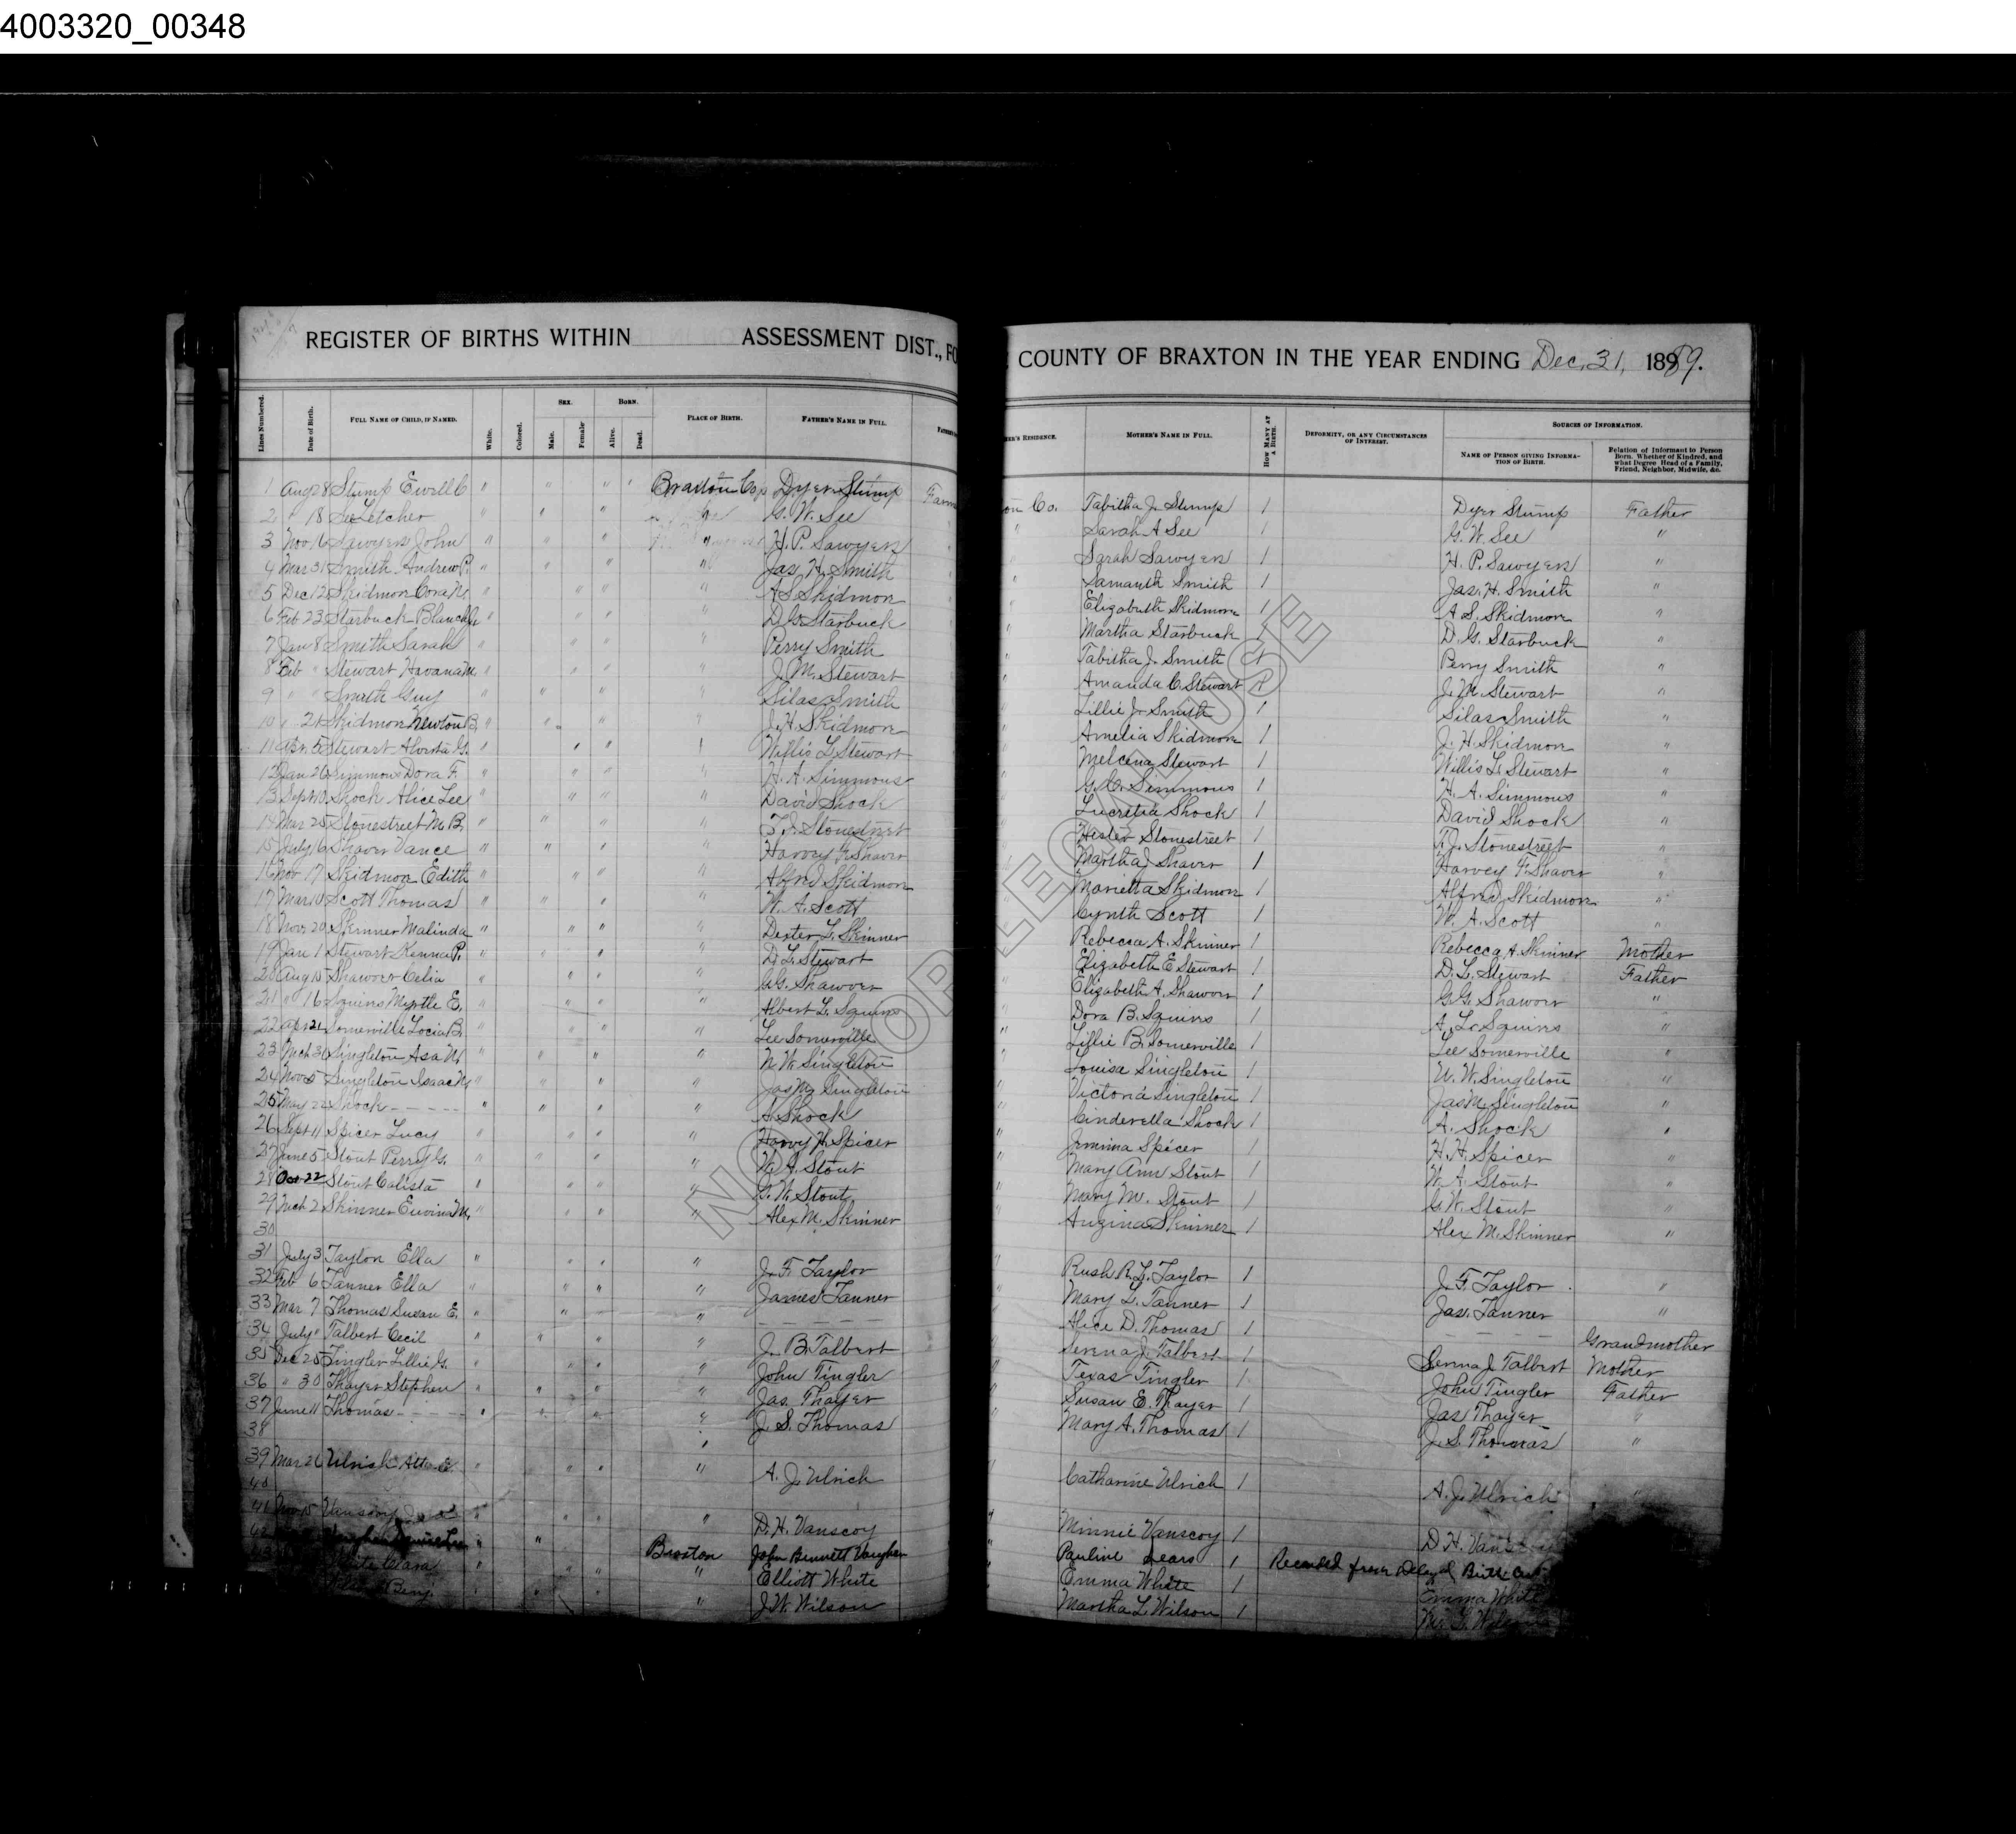 4003320_00348
REGISTER OF BIRTHS WITHIN ASSESSMENT DIST., FO
COUNTY OF BRAXTON IN THE YEAR ENDING Dec, 31, 1889.
Lines Numbered. Date of Birth. FULL NAME OF CHILD, IF NAMED. White. Colored. SEX. Male. Female BORN. Alive. Dead. PLACE OF BIRTH. FATHER'S NAME IN FULL. FATHER'S
ER'S RESIDENCE. MOTHER'S NAME IN FULL. HOW MANY AT A BIRTH. DEFORMITY, OR ANY CIRCUMSTANCES OF INTEREST. SOURCES OF INFORMATION. NAME OF PERSON GIVING INFORMATION OF BIRTH. Relation of Informant to Person Born. Whether of Kindred, and what Degree Head of a Family, Friend, Neighbor, Midwife, &c.
1 Aug 28 Stump Ewell C " " " " Braxton Co Dyer Stump Farm on Co. Tabitha J. Stump 1 Dyer Stump Father
2 " 18 See Letcher " " " " G. W. See " Sarah A See 1 G. W. See "
3 Nov 16 Sawyers John " " " " H. P. Sawyers Sarah Sawyers 1 H. P. Sawyers "
4 Mar 31 Smith Andrew P. " " " " Jas. H. Smith " Samanth Smith 1 Jas. H. Smith "
5 Dec 12 Skidmon Cora " " " " A S Skidmon " Elizabeth Skidmore 1 A. S. Skidmon "
6 Feb 23 Starbuck Blanch " " " " D. G. Starbuck " Martha Starbuck 1 D. G. Starbuck "
7 Jan 8 Smith Sarah " " " " Perry Smith " Tabitha J. Smith 1 Perry Smith "
8 Feb " Stewart Havana M " " " " J. M. Stewart " Amanda C. Stewart 1 J. M. Stewart "
9 " " Smith Guy " " " " Silas Smith " Lillie J. Smith 1 Silas Smith "
10 " 21 Skidmon Newton B. " " " " J. H. Skidmon " Amelia Skidmore 1 J. H. Skidmon "
11 5 Stewart Alverta G. " " " " Willis L. Stewart " Melcena Stewart 1 Willis L. Stewart "
12 Jan 26 Simmons Dora F. " " " " H. A. Simmons " G. C. Simmons 1 H. A. Simmons "
13 Sept 10 Shock Alice Lee " " " " David Shock " Lucretia Shock 1 David Shock "
14 Mar 25 Stonestreet M. B. " " " " T. J. Stonestreet " Hester Stonestreet 1 T. J. Stonestreet "
15 July 6 Shaver Vance " " " " Harvey F. Shaver " Martha J Shaver 1 Harvey F. Shaver "
16 Nov 17 Skidmon Edith " " " " Alfred Skidmon " Marietta Skidmon 1 Alfred Skidmon "
17 Mar 10 Scott Thomas " " " " W. A. Scott " Cynth Scott 1 W. A. Scott "
18 Nov 20 Skinner Malinda " " " " Dexter L. Skinner " Rebecca A. Skinner 1 Rebecca A. Skinner Mother
19 Jan 1 Stewart Kenna P. " " " " D. L. Stewart " Elizabeth E Stewart 1 D. L. Stewart Father
20 Aug 15 Shawver Celia " " " " G. G. Shawver " Elizabeth A. Shawver 1 G. G. Shawver "
21 " 16 Squires Myrtle E. " " " " Albert L. Squires " Dora B. Squires 1 A. L. Squires "
22 Apr 21 Somerville Locia B. " " " " Lee Somerville " Lillie B. Somerville 1 Lee Somerville "
23 Mch 31 Singleton Asa W. " " " " W. Singleton " Louisa Singleton 1 W. Singleton "
24 Nov 5 Singleton Isaac N. " " " " Jas M Singleton " Victoria Singleton 1 Jas M. Singleton "
25 May 22 Shock " " " " A. Shock " Cinderella Shock 1 A. Shock "
26 Sept 11 Spicer Lucy " " " " Harvy H. Spicer " Jemima Spicer 1 H. H. Spicer "
27 June 5 Stout Perry G. " " " " W. A. Stout " Mary Ann Stout 1 W. A. Stout "
28 Oct 22 Stout Calista " " " " G. W. Stout " Mary M. Stout 1 G. W. Stout "
29 Mch 2 Skinner M. " " " " Alex M. Skinner " Skinner 1 Alex M. Skinner "
30
31 July 3 Taylor Ella " " " " J. F. Taylor " Rush R. L. Taylor 1 J. F. Taylor "
32 Feb 6 Tanner Ella " " " " James Tanner " Mary L. Tanner 1 Jas. Tanner "
33 Mar 7 Thomas Susan E. " " " - - - - " Alice D. Thomas 1 - - - Grandmother
34 July " Talbert Cecil " " " " J. B. Talbert " Serena J. Talbert 1 Serena J. Talbert Mother
35 Dec 25 Tingler Lillie G. " " " " John Tingler " Texas Tingler 1 John Tingler Father
36 " 30 Thayer Stephen " " " " Jas. Thayer " Susan E. Thayer 1 Jas Thayer "
37 June 11 Thomas - - - " " " " J. S. Thomas " Mary A. Thomas 1 J. S. Thomas "
38
39 Mar 26 Ulrich " " " " A. J. Ulrich " Catharine Ulrich 1 A. J. Ulrich "
40
41 Nov 15 Vanscoy " " " " D. H. Vanscoy " Minnie Vanscoy 1 D. H. Vanscoy
42 " " Braxton John Bennett Vaughn " Pauline Sears 1 Recorded from Delayed Birth
White Clara " " " " Elliott White " Emma White 1 Emma White
Benj " " " " J. W. Wilson " Martha L. Wilson 1 M. L. Wilson
NOT FOR LEGAL USE